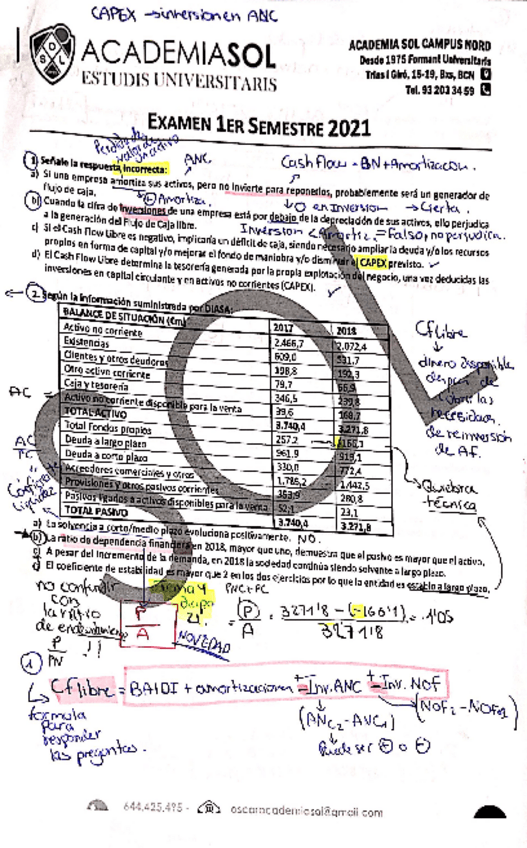 CAPEX → inversion en ANC
ACADEMIASOL
ESTUDIS UNIVERSITARIS
ACADEMIA SOL CAMPUS NORD
Desde 1975 Formant Universitaris
Trias i Giró, 15-19, Bxs, BCN
Tel. 93 203 34 59
EXAMEN 1ER SEMESTRE 2021
ANC
Cash flow = BN + Amortizacion.
1. Señale la respuesta incorrecta:
a) Si una empresa amortiza sus activos, pero no invierte para reponerlos, probablemente será un generador de
flujo de caja.
⊕ Amortiza.
↓O en Inversion → Cierta.
b) Cuando la cifra de inversiones de una empresa está por debajo de la depreciación de sus activos, ello perjudica
a la generación del Flujo de Caja libre.
Inversion < Amortiz. = Falso, no perjudica.
c) Si el Cash Flow Libre es negativo, implicaría un déficit de caja, siendo necesario ampliar la deuda y/o los recursos
propios en forma de capital y/o mejorar el fondo de maniobra y/o disminuir el CAPEX previsto. ✓
d) El Cash Flow Libre determina la tesorería generada por la propia explotación del negocio, una vez deducidas las
inversiones en capital circulante y en activos no corrientes (CAPEX). ✓
2. Según la información suministrada por DIASA:
BALANCE DE SITUACIÓN (€m) 2017 2018
Activo no corriente 2.466,7 2.072,4
Existencias 609,0 531,7
Clientes y otros deudores 198,8 192,3
Otro activo corriente 79,7 66,9
Caja y tesorería 346,5 239,8
Activo no corriente disponible para la venta 39,6 168,7
TOTAL ACTIVO 3.740,4 3.271,8
Total Fondos propios 257,2 -166,1
Deuda a largo plazo 961,9 919,1
Deuda a corto plazo 330,0 772,4
Acreedores comerciales y otros 1.785,2 1.442,5
Provisiones y otros pasivos corrientes 353,9 280,8
Pasivos ligados a activos disponibles para la venta 52,1 23,1
TOTAL PASIVO 3.740,4 3.271,8
Cflibre
↓
dinero disponible
despues de
cubrir las
necesidades
de reinversion
de AF.
AC =
AC
PC
Quiebra
técnica
a) La solvencia a corto/medio plazo evoluciona positivamente. NO.
b) La ratio de dependencia financiera en 2018, mayor que uno, demuestra que el pasivo es mayor que el activo.
c) A pesar del incremento de la demanda, en 2018 la sociedad continúa siendo solvente a largo plazo.
d) El coeficiente de estabilidad es mayor que 2 en los dos ejercicios por lo que la entidad es estable a largo plazo.
no confundir
con
la ratio
de endeudamiento
P
PN !!
diapo
21.
P
A
NOVEDAD
PNC+PC
= P/A = 3271'8 - (-166'1) / 3271'8 = 1'05
1
↳ Cflibre = BAIDI + amortizaciones +- Inv. ANC +- Inv. NOF
(ANC₂ - ANC₁)
(NOF₂ - NOF₁)
↓
Puede ser ⊕ o ⊖
formula
para
responder
las preguntas.
644.425.495 - oscaracademiasol@gmail.com